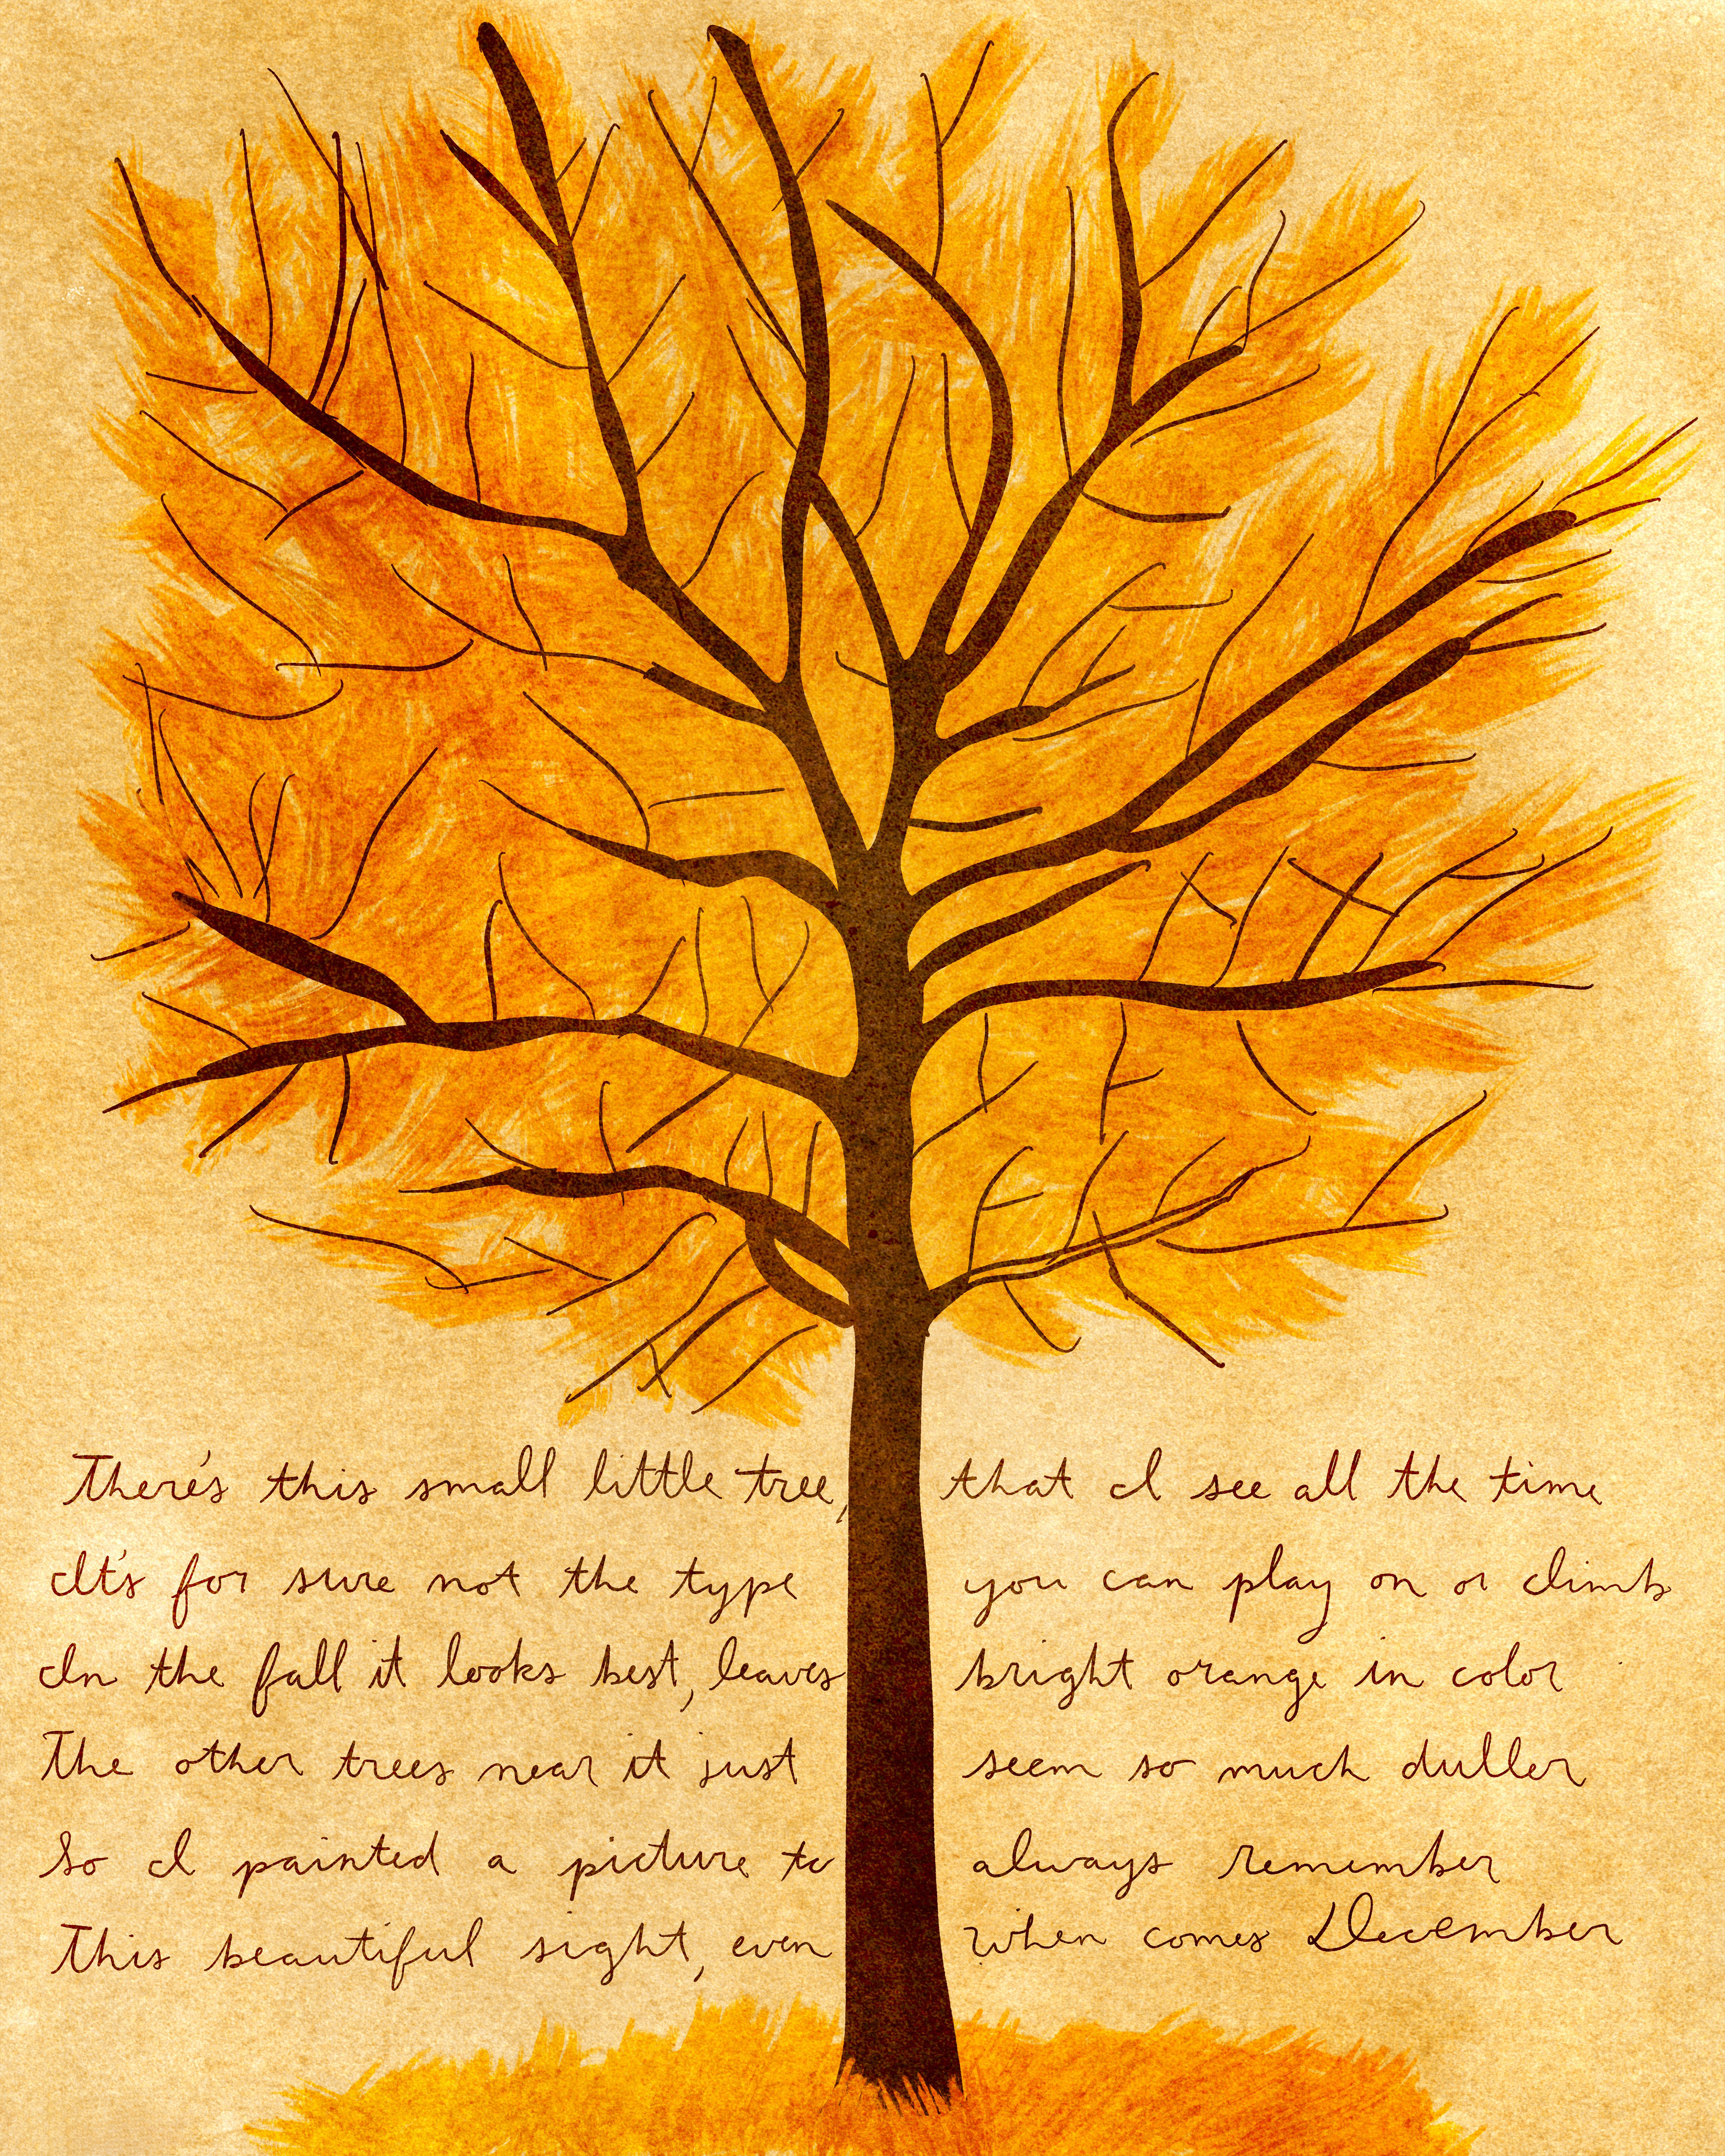 There's this small little tree, that I see all the time
It's for sure not the type you can play on or climb
In the fall it looks best, leaves bright orange in color
The other trees near it just seem so much duller
So I painted a picture to always remember
This beautiful sight, even when comes December